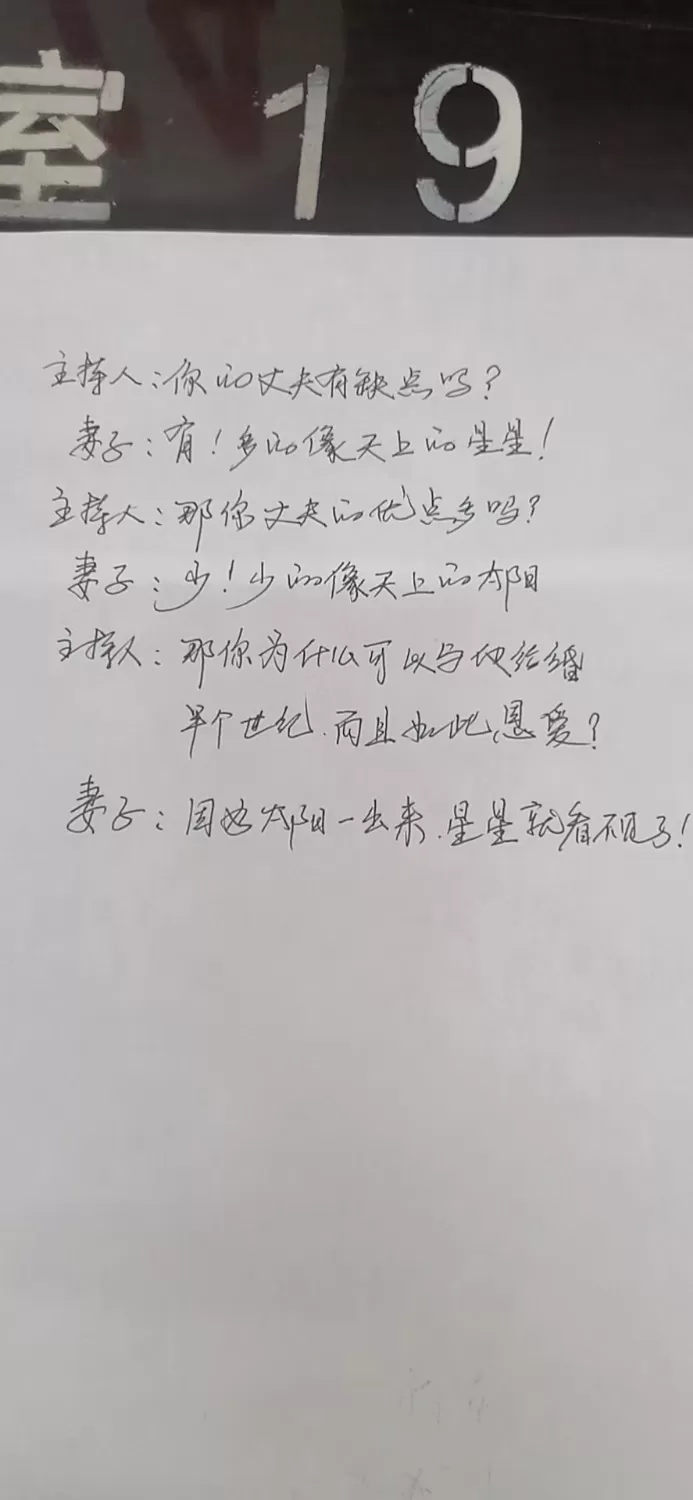 室 19
主持人:你的丈夫有缺点吗?
妻子:有!多的像天上的星星!
主持人:那你丈夫的优点多吗?
妻子:少!少的像天上的太阳
主持人:那你为什么可以与他结婚
半个世纪.而且如此恩爱?
妻子:因为太阳一出来.星星就看不见了!